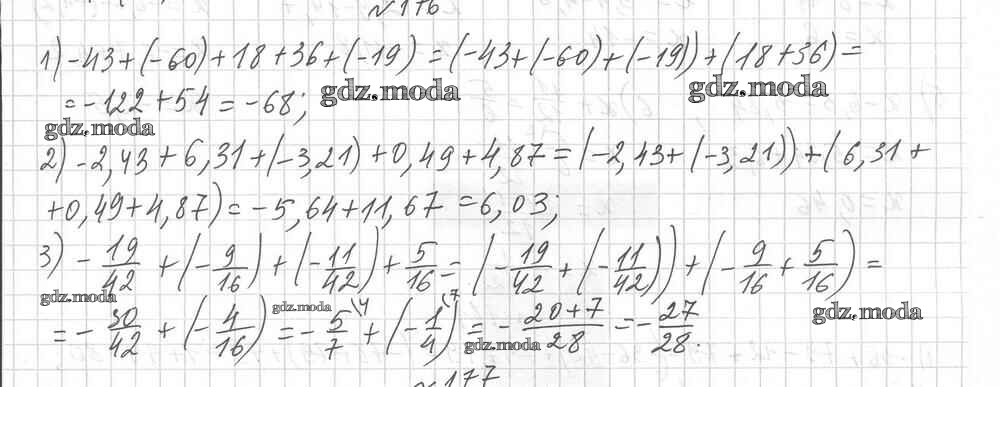 №176
1) -43+(-60)+18+36+(-19)=(-43+(-60)+(-19))+(18+36)=
=-122+54=-68;
gdz.moda
gdz.moda
gdz.moda
2) -2,43+6,31+(-3,21)+0,49+4,87=(-2,43+(-3,21))+(6,31+
+0,49+4,87)=-5,64+11,67=6,03;
3) -19/42+(-9/16)+(-11/42)+5/16=(-19/42+(-11/42))+(-9/16+5/16)=
gdz.moda
gdz.moda
gdz.moda
=-30/42+(-4/16)=-5/7\4+(-1/4\7)=-20+7/28=-27/28.
gdz.moda
№177